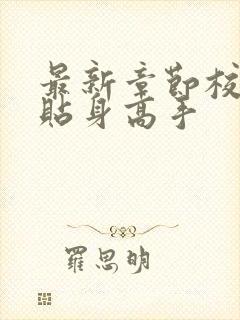 最新章節校
貼身高手
羅思明